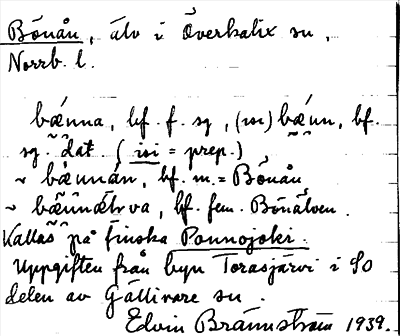 Bönån, älv i Överkalix sn,
Norrb. l.
bǽnna, bf. f. sg, (isi) bǽnn, bf.
sg. dat (isi = prep.)
~ bænnån, bf. m. = Bönån
bf. fem. Bönälven.
Kallas på finska Pounojoki.
Uppgiften från byn Torasjärvi i SO
delen av Gällivare sn.
Edvin Brännström 1939.